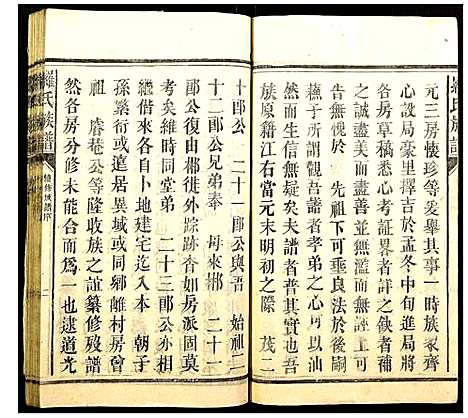 羅氏族譜
元三房懷珍等爰舉其事一時族衆齊
心設局豪里擇吉於孟冬中旬進局將
各房草稿悉心考証畧者詳之缺者補
之誠盡美而善並無濫而無遺矣以
告無愧於 先祖下可垂良法於後嗣
信無疑矣夫譜者孝弟之心汁而
族原籍江右當元末明初之際 茂二
十郎公 二十一郎公與吾 始祖二
十二郎公兄弟奉 母來郴 二十一
郎公復由郴徙外踪跡杳如房派固莫
考矣維時同堂弟 二十三郎公亦相
繼偕來各自卜地建宅迄入本朝子
孫繁衍或遠居異域或同鄉離村房曾
祖 睿巷公等隆收族之誼纂修殘譜
然各房分修未能合而爲一也逮道光
羅氏族譜
續修族譜序